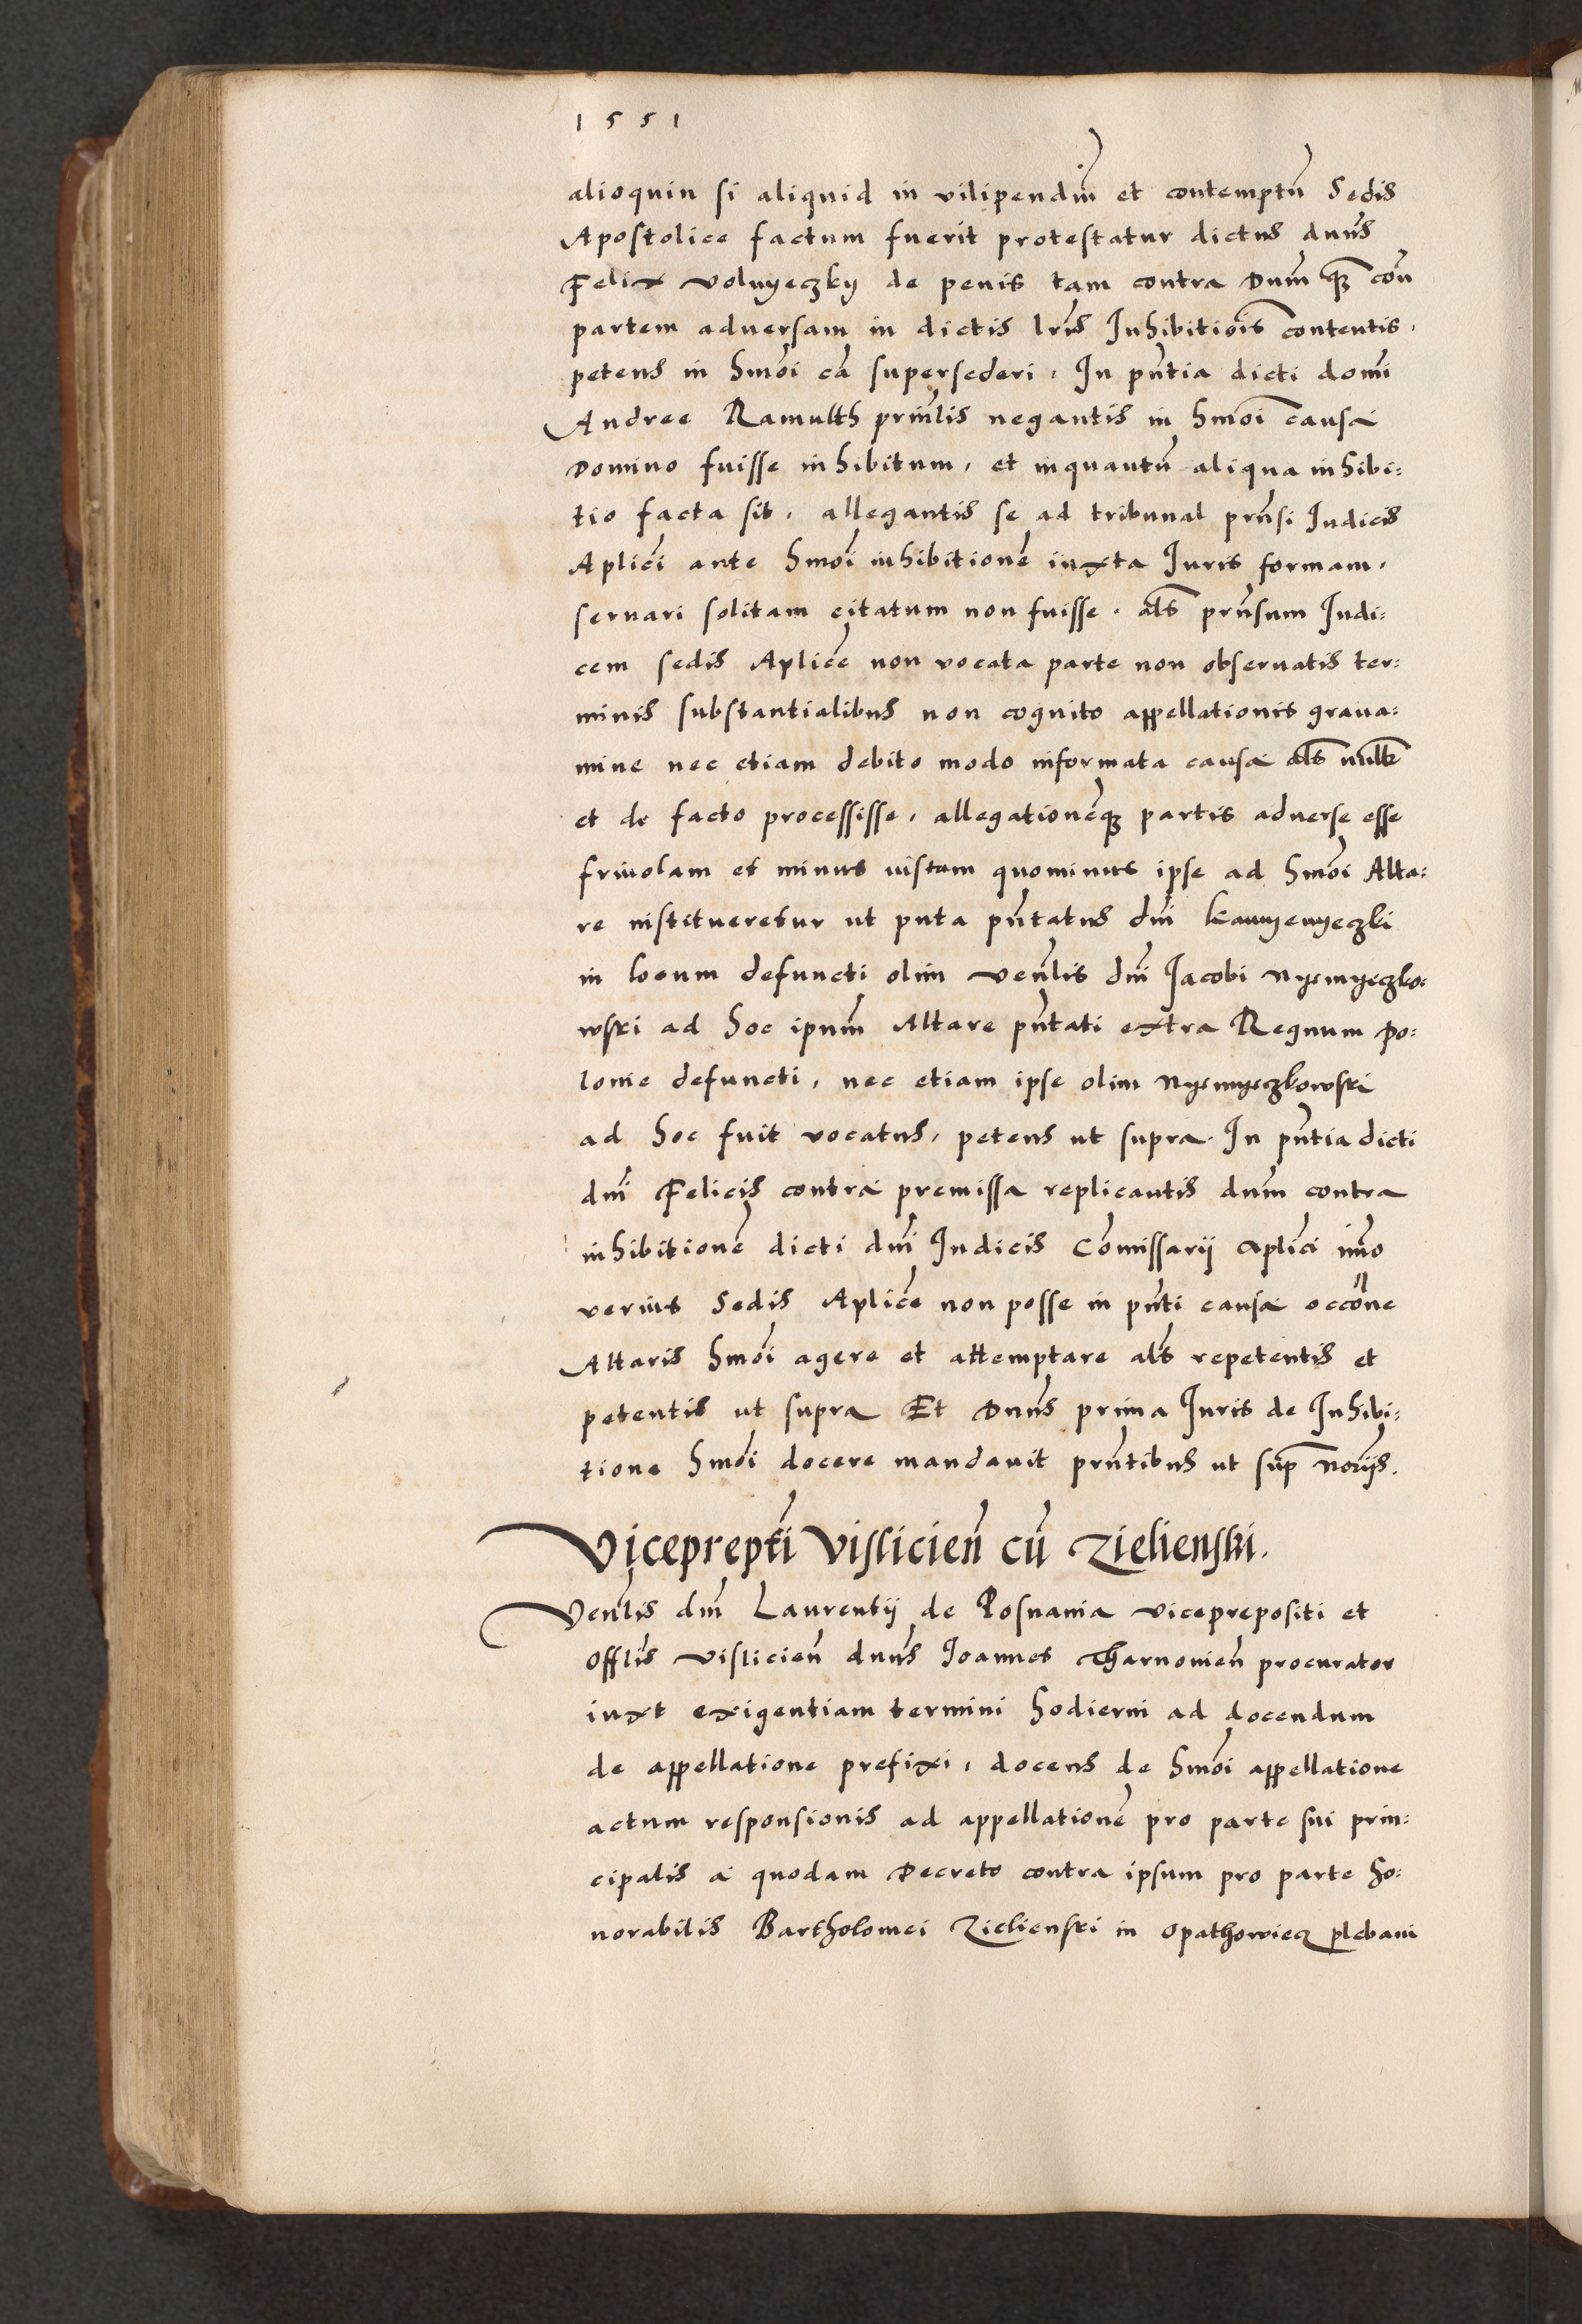 1551
alioquin si aliquid in vilipendiũ et contemptũ Sedis
Apostolice factum fuerit protestatur dictus dnũs
Felix volnyeczky de penis tam contra Dnũm q̃ coñ
partem adversam in dictis lrĩs Inhibitiõis contentis,
petens in hmõi cã supersederi, In pñtia dicti domĩ
Andree Ramulth prinĩlis negantis in hmõi causa
Domino fuisse inhibitum, et inquantũ aliqua inhibi=
tio facta sit, allegantis se ad tribunal prñsi Iudicis
Aplicĩ ante hmõi inhibitionẽ iuxta Iuris formam,
servari solitam citatum non fuisse. als̃ prñsum Iudi=
cem sedis Aplicẽ non vocata parte non observatis ter=
minis substantialibus non cognito appellationis grava=
mine nec etiam debito modo informata causa als̃ nullr̃
et de facto processisse, allegationẽq; partis adverse esse
frivolam et minus iustam quominus ipse ad hmõi Alta=
re institueretur ut puta pñtatus dnĩ kamyenyeczki
in locum defuncti olim venĩlis dnĩ Jacobi Nyemyeczko=
wski ad hoc ipũm Altare pñtati extra Regnum Po=
lonie defuncti, nec etiam ipse olim Nyemyeczkowski
ad hoc fuit vocatus, petens ut supra. In pñtia dicti
dnĩ Felicis contra premissa replicantis dnũm contra
inhibitionẽ dicti dnĩ Iudicis Cõmissarij Aplicĩ im̃o
verius Sedis Aplicẽ non posse in pñti causa occõne
Altaris hmõi agere et attemptare als̃ repetentis et
petentis ut supra Et Dnũs prima Iuris de Inhibi=
tione hmõi docere mandavit prñtibus ut sup̃ Norĩjs.
Viceprepti̇̃ Visliciẽn cũ Zielienski.
Venĩlis dnĩ Laurentij de Posnania viceprepositi et
offlĩs visliciẽn dnũs Joannes Tharnoviẽn procurator
iuxt exigentiam termini hodierni ad docendum
de appellatione prefixi, docens de hmõi appellatione
actum responsionis ad appellationẽ pro parte sui prin=
cipalis a quodam Decreto contra ipsum pro parte ho=
norabilis Bartholomei Zielienski in Opathowiecz plebani